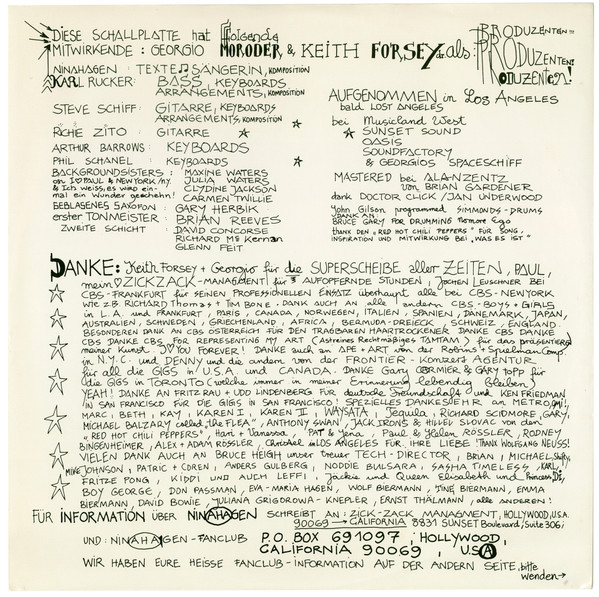 DIESE SCHALLPLATTE hat folgende
MITWIRKENDE : GEORGIO MORODER & KEITH FORSEY als: PRODUZENTEN!
NINAHAGEN : TEXTE SÄNGERIN, KOMPOSITION
KARL RUCKER: BASS, KEYBOARDS
ARRANGEMENTS, KOMPOSITION
STEVE SCHIFF: GITARRE, KEYBOARDS
ARRANGEMENTS, KOMPOSITION
RICHE ZITO : GITARRE
ARTHUR BARROWS: KEYBOARDS
PHIL SCHANEL : KEYBOARDS
BACKGROUNDSISTERS : MAXINE WATERS
on I ♡ PAUL & NEW YORK/NY JULIA WATERS
& Ich weiss, es wird ein- CLYDINE JACKSON
mal ein Wunder geschehn! CARMEN TWILLIE
BEBLASENES SAXOFON : GARY HERBIK
erster TONMEISTER : BRIAN REEVES
ZWEITE SCHICHT : DAVID CONCORSE
RICHARD Mc Kernan
GLENN FEIT
AUFGENOMMEN in LOS ANGELES
bald LOST ANGELES
bei Musicland West
SUNSET SOUND
OASIS
SOUNDFACTORY
& GEORGIOS SPACESCHIFF
MASTERED bei ALANZENTZ
von BRIAN GARDENER
dank DOCTOR CLICK / JAN UNDERWOOD
John Gilson programmed SIMMONDS-DRUMS
DANK AN:
BRUCE GARY FOR DRUMMING Nomore Ego
THANK DEN „RED HOT CHILI PEPPERS" FÜR SONG,
INSPIRATION UND MITWIRKUNG BEI „WAS ES IST"
DANKE: Keith FORSEY + Georgio für die SUPERSCHEIBE aller ZEITEN, PAUL,
mein ♡ ZICKZACK-MANAGEMENT für AUFOPFERNDE STUNDEN, JOCHEN LEUSCHNER BEI
CBS-FRANKFURT FÜR SEINEN PROFESSIONELLEN EINSATZ überhaupt alle bei CBS-NEWYORK
WIE Z.B. RICHARD Thomas + TIM BONE. DANK AUCH AN alle andern CBS-BOYS + GIRLS
in L.A. und FRANKFURT, PARIS, CANADA, NORWEGEN, ITALIEN, SPANIEN, DÄNEMARK, JAPAN,
AUSTRALIEN, SCHWEDEN, GRIECHENLAND, AFRICA, BERMUDA-DREIECK, SCHWEIZ, ENGLAND.
BESONDEREN DANK AN CBS ÖSTERREICH FÜR DEN TRAGBAREN HAARTROCKENER DANKE CBS DANKE
CBS DANKE CBS FOR REPRESENTING MY ART (Astreines Rechtmäßiges TAMTAM) für das präsentieren
meiner Kunst. JOY YOU FOREVER! DANKE auch an APE + ART von der Robins + Spielman Comp.
in N.Y.C. und DENNY und die andern von der FRONTIER - Konzert AGENTUR
für all die GIGS in U.S.A. und CANADA. DANKE Gary CORMIER & GARY TOPP für
die GIGS in TORONTO (welche immer in meiner Erinnerung lebendig bleiben)
YEAH! DANKE AN FRITZ RAU + UDO LINDENBERG FÜR deutsche Freundschaft und KEN FRIEDMAN
IN SAN FRANCISCO FÜR DIE GIGS IN SAN FRANCISCO! SPEZIELLES DANKESEHR an METROGM!
MARC, BETH, KAY, KAREN I, KAREN II WAYSATA, Tequila, RICHARD SCIDMORE, GARY,
MICHAEL BALZARY called „the FLEA", ANTHONY SWAN, JACK IRONS & HILLEL SLOVAC von den
„RED HOT CHILI PEPPERS", Hart + Vanessa, PAT & Jena, Paul & Helen RÖSSLER, RODNEY
BINGENHEIMER, ALEX + ADAM RÖSSLER, Christel in LOS ANGELES FÜR IHRE LIEBE! THANX WOLFGANG NEUSS!
VIELEN DANK AUCH AN BRUCE HEIGH unser treuer TECH-DIRECTOR, BRIAN, MICHAEL
MIKE JOHNSON, PATRIC + COREN, ANDERS GULBERG, NODDIE BULSARA, SASHA TIMELESS, KARL,
FRITZE PONG, KIDDI UND AUCH LEFFI, Jackie und Queen Elisabeth und Princess DI,
BOY GEORGE, DON PASSMAN, EVA-MARIA HAGEN, WOLF BIERMANN, TINE BIERMANN, EMMA
BIERMANN, DAVID BOWIE, YULIANA GRIGOROWA-KNEPLER, ERNST THÄLMANN, alle anderen!
FÜR INFORMATION ÜBER NINAHAGEN SCHREIBT AN: ZICK-ZACK MANAGMENT, HOLLYWOOD, U.S.A.
90069 → CALIFORNIA 8831 SUNSET Boulevard, Suite 306!
UND: NINAHAGEN-FANCLUB P.O. BOX 691097, HOLLYWOOD,
CALIFORNIA 90069, USA
WIR HABEN EURE HEISSE FANCLUB-INFORMATION AUF DER ANDERN SEITE, bitte
wenden→